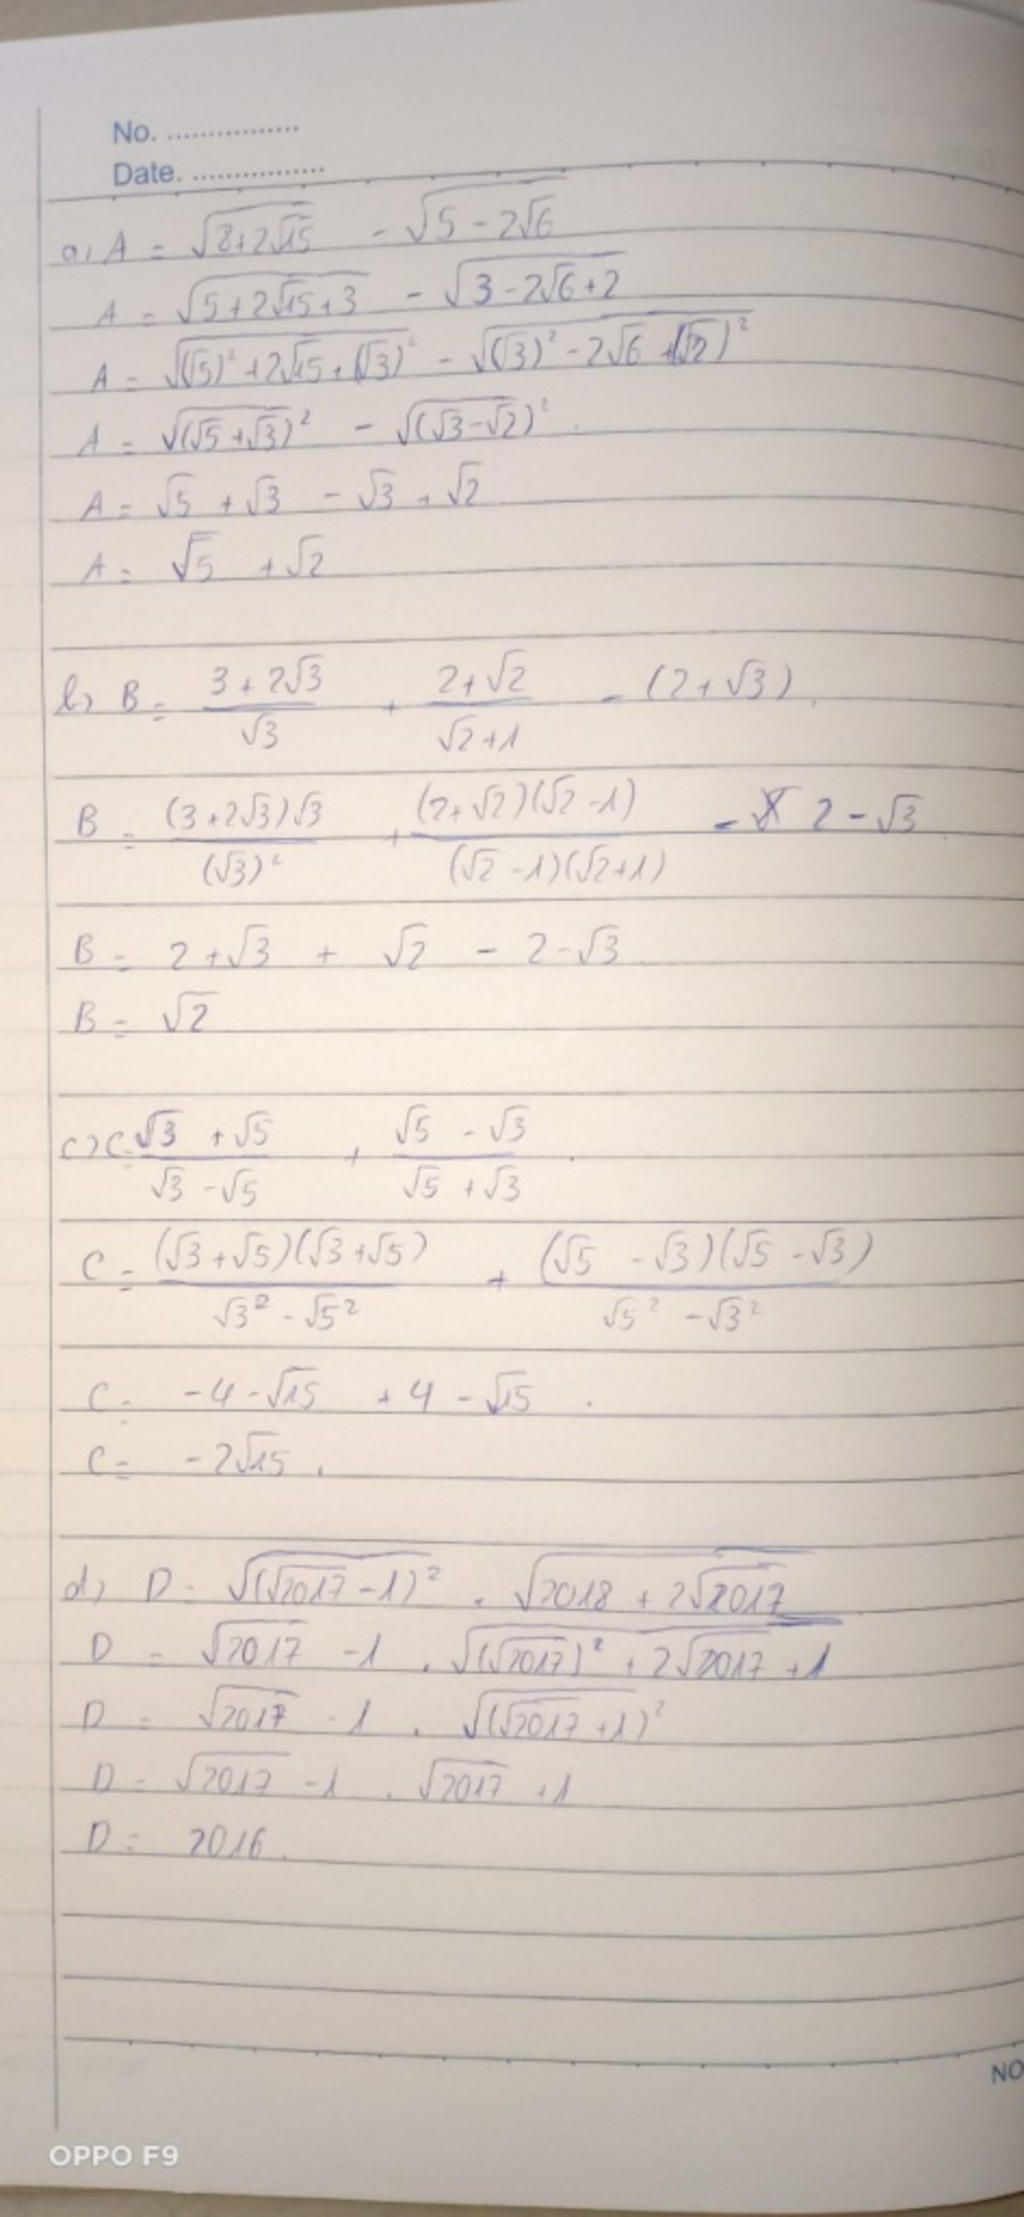 No. ................
Date. ................
a, A = √(8+2√15) - √(5-2√6)
A = √(5+2√15+3) - √(3-2√6+2)
A = √((√5)²+2√15+(√3)²) - √((√3)²-2√6+(√2)²)
A = √((√5+√3)²) - √((√3-√2)²).
A = √5 + √3 - √3 + √2
A = √5 + √2
b) B = (3+2√3)/√3 + (2+√2)/(√2+1) - (2+√3).
B = ((3+2√3)√3)/(√3)² + ((2+√2)(√2-1))/((√2-1)(√2+1)) - 2-√3
B = 2+√3 + √2 - 2-√3
B = √2
c) C = (√3+√5)/(√3-√5) + (√5-√3)/(√5+√3).
C = ((√3+√5)(√3+√5))/(√3²-√5²) + ((√5-√3)(√5-√3))/(√5²-√3²)
C = -4-√15 + 4-√15.
C = -2√15.
d) D = √((√2017-1)²) . √(2018+2√2017)
D = √2017 -1 . √((√2017)²+2√2017+1)
D = √2017 -1 . √((√2017+1)²)
D = √2017 -1 . √2017 +1
D = 2016.
NO
OPPO F9